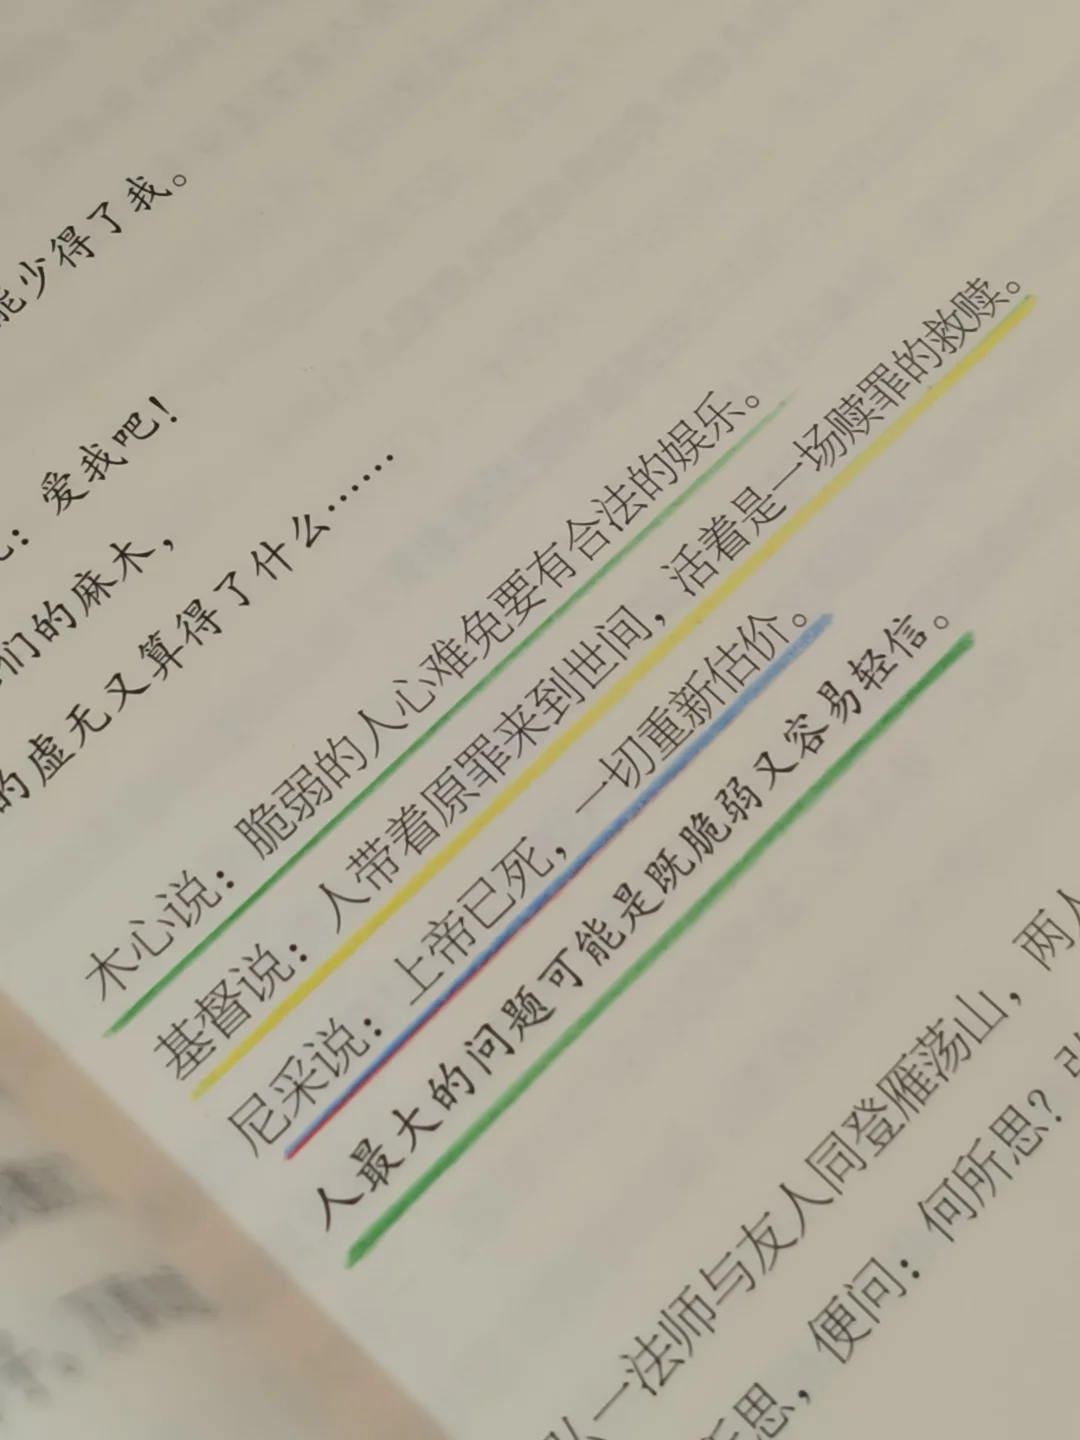 能少得了我。
：爱我吧！
们的麻木，
的虚无又算得了什么……
木心说：脆弱的人心难免要有合法的娱乐。
基督说：人带着原罪来到世间，活着是一场赎罪的救赎。
尼采说：上帝已死，一切重新估价。
人最大的问题可能是既脆弱又容易轻信。
弘一法师与友人同登雁荡山，两人
所思，便问：何所思？